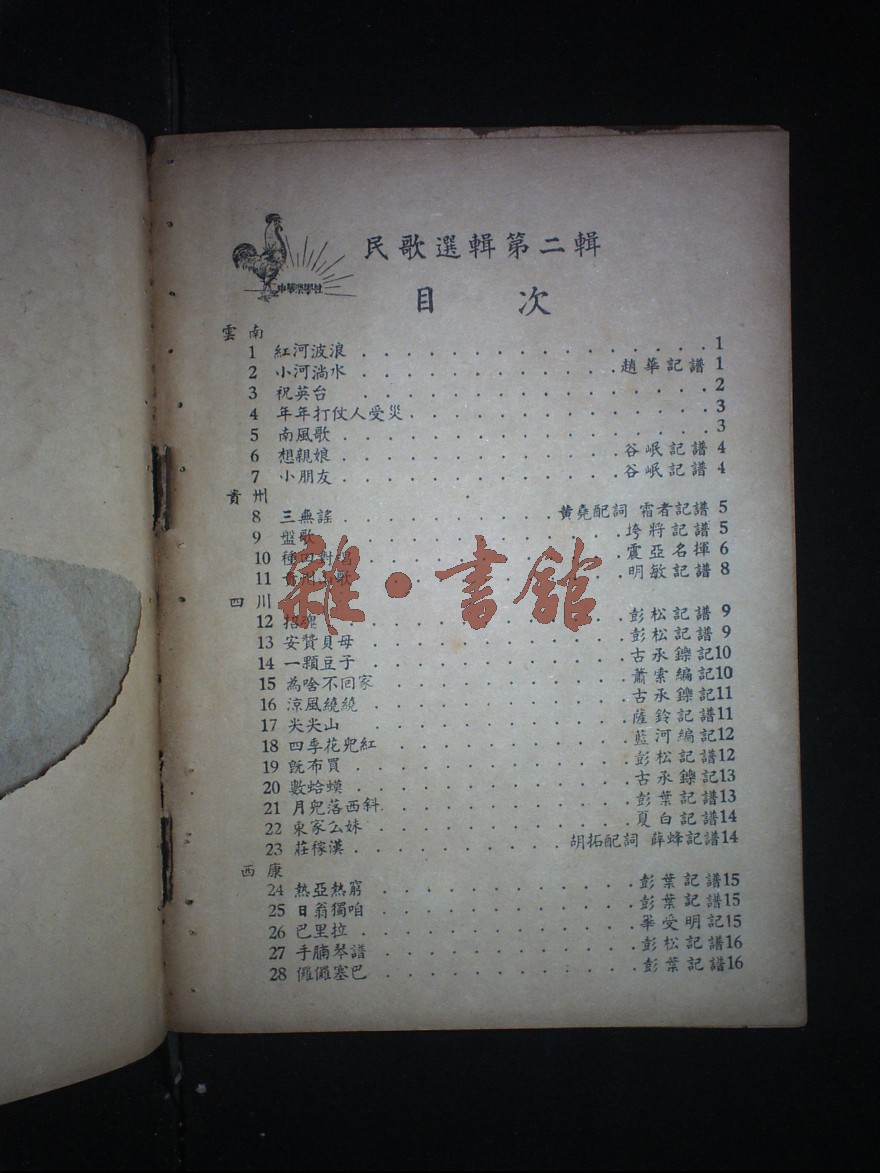 民歌選輯第二輯
中華樂學社
目 次
雲南
1 紅河波浪 1
2 小河淌水 趙華記譜 1
3 祝英台 2
4 年年打仗人受災 3
5 南風歌 3
6 想親娘 谷岷記譜 4
7 小朋友 谷岷記譜 4
貴州
8 三無謠 黄堯配詞 霜者記譜 5
9 盤歌 垮將記譜 5
10 種田對唱 震亞名揮 6
11 貴州山歌 明敏記譜 8
四川
12 招魂 彭松記譜 9
13 安贊貝母 彭松記譜 9
14 一顆豆子 古承鑠記 10
15 為啥不回家 蕭索編記 10
16 涼風繞繞 古承鑠記 11
17 尖尖山 薩鈴記譜 11
18 四季花兒紅 藍河編記 12
19 旣布買 彭松記譜 12
20 數蛤蟆 古承鑠記 13
21 月兒落西斜 彭葉記譜 13
22 東家么妹 夏白記譜 14
23 莊稼漢 胡拓配詞 薛蜂記譜 14
西康
24 熱亞熱窮 彭葉記譜 15
25 日翁獨咱 彭葉記譜 15
26 巴里拉 畢受明記 15
27 手腩琴譜 彭松記譜 16
28 儸儸塞巴 彭葉記譜 16
雜·書館